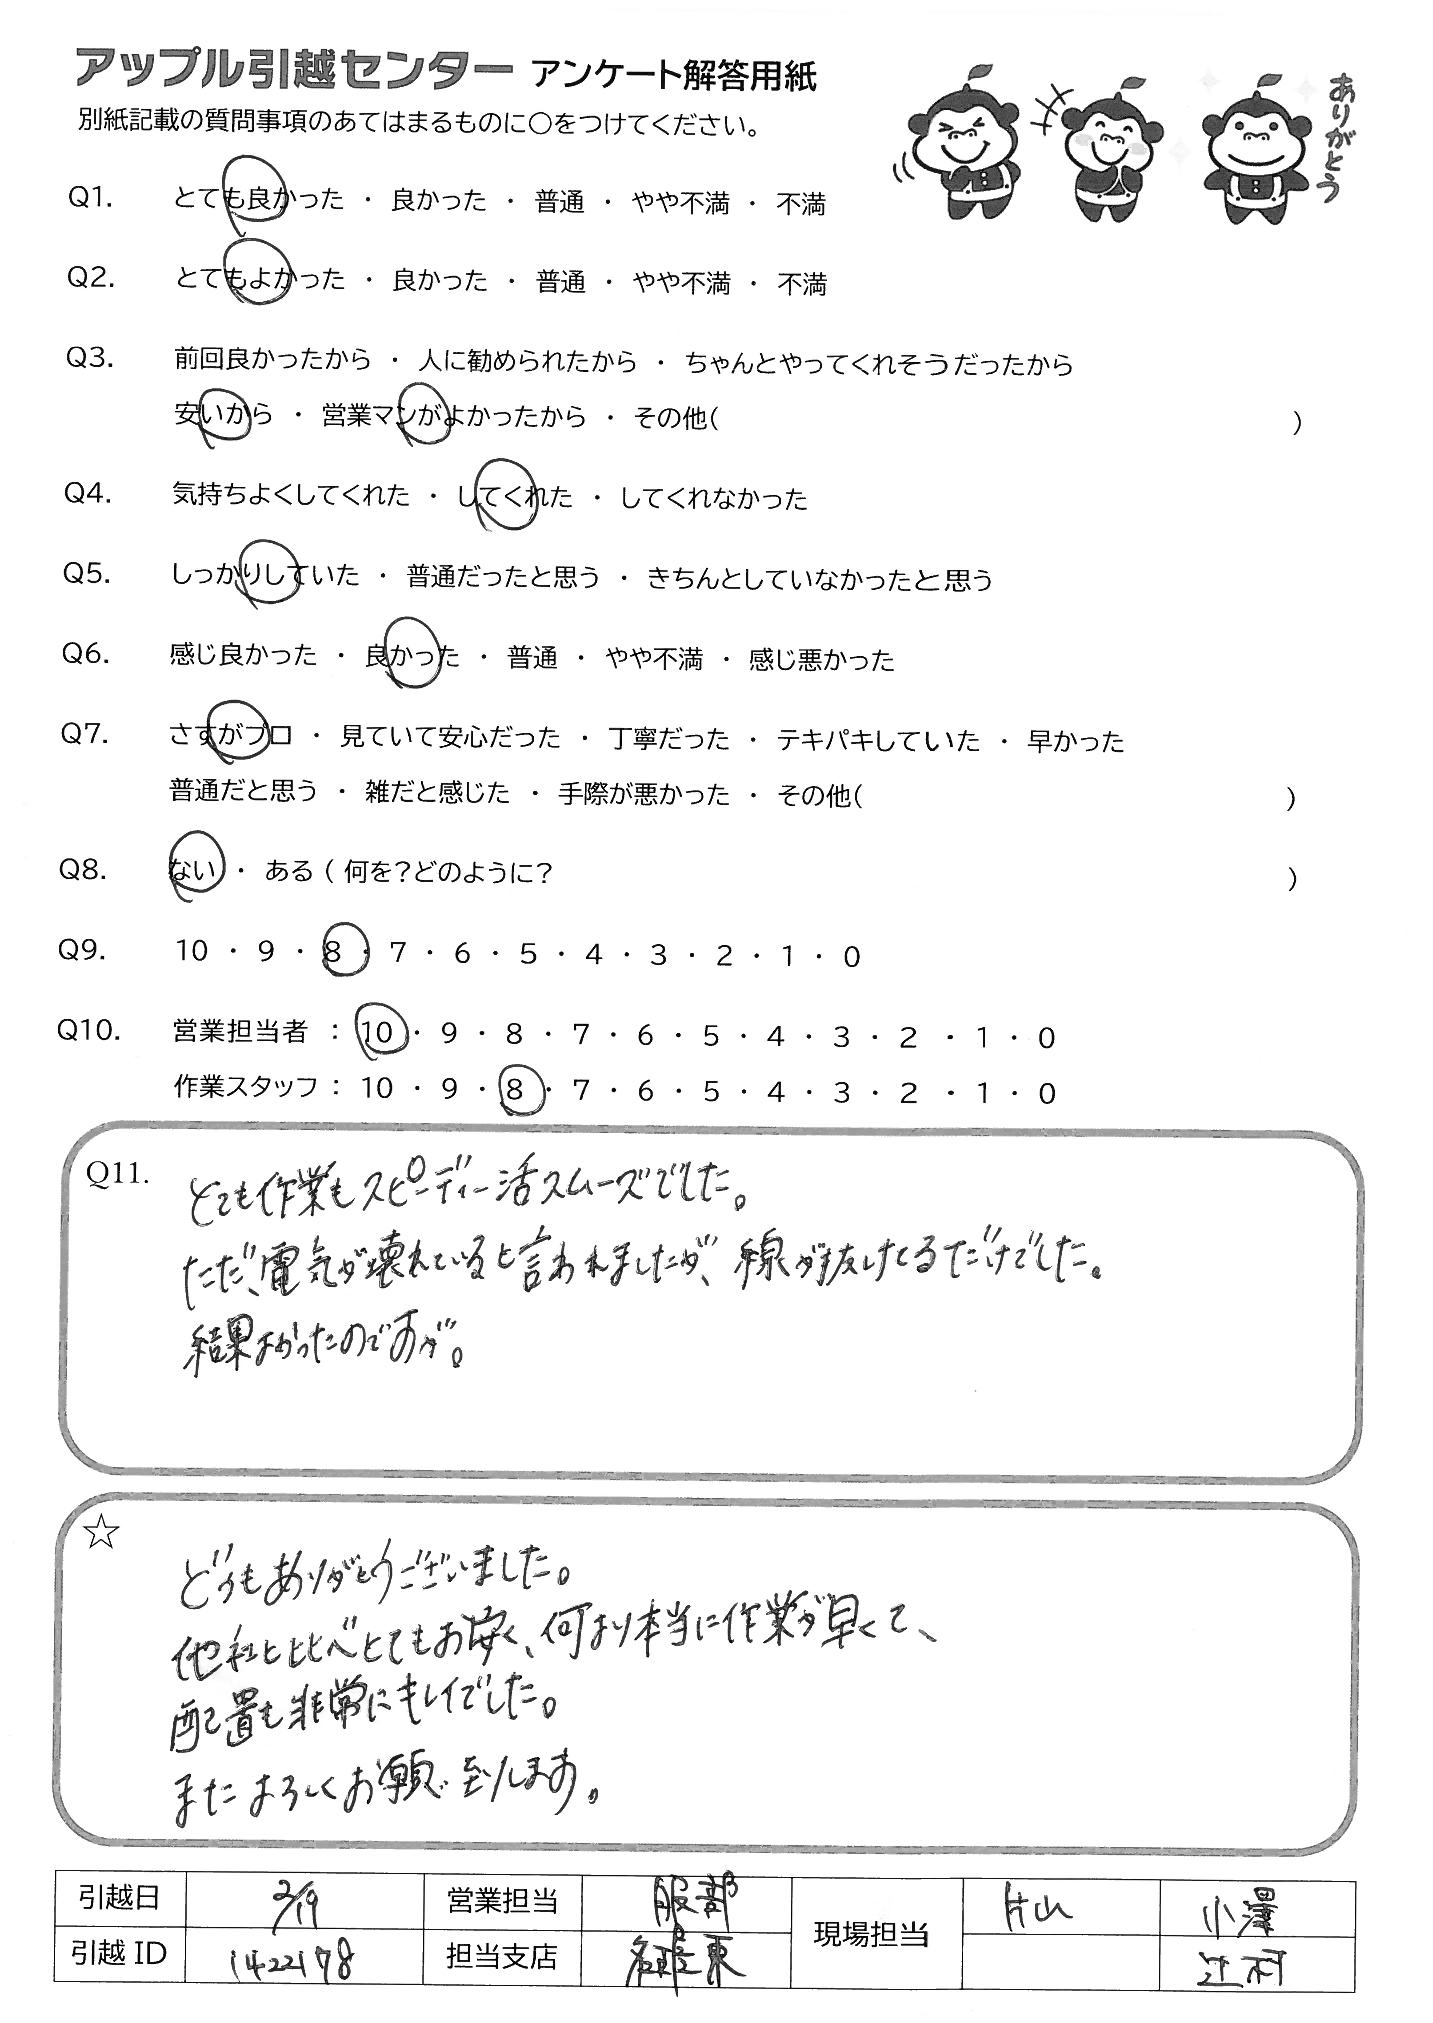 アップル引越センター アンケート解答用紙
別紙記載の質問事項のあてはまるものに○をつけてください。
ありがとう
Q1. とても良かった ・ 良かった ・ 普通 ・ やや不満 ・ 不満
Q2. とてもよかった ・ 良かった ・ 普通 ・ やや不満 ・ 不満
Q3. 前回良かったから ・ 人に勧められたから ・ ちゃんとやってくれそうだったから
安いから ・ 営業マンがよかったから ・ その他( )
Q4. 気持ちよくしてくれた ・ してくれた ・ してくれなかった
Q5. しっかりしていた ・ 普通だったと思う ・ きちんとしていなかったと思う
Q6. 感じ良かった ・ 良かった ・ 普通 ・ やや不満 ・ 感じ悪かった
Q7. さすがプロ ・ 見ていて安心だった ・ 丁寧だった ・ テキパキしていた ・ 早かった
普通だと思う ・ 雑だと感じた ・ 手際が悪かった ・ その他( )
Q8. ない ・ ある ( 何を?どのように? )
Q9. 10 ・ 9 ・ 8 ・ 7 ・ 6 ・ 5 ・ 4 ・ 3 ・ 2 ・ 1 ・ 0
Q10. 営業担当者 : 10 ・ 9 ・ 8 ・ 7 ・ 6 ・ 5 ・ 4 ・ 3 ・ 2 ・ 1 ・ 0
作業スタッフ : 10 ・ 9 ・ 8 ・ 7 ・ 6 ・ 5 ・ 4 ・ 3 ・ 2 ・ 1 ・ 0
Q11. とても作業もスピーディー活スムーズでした。
ただ、電気が壊れていると言われましたが、線が抜けてるだけでした。
結果よかったのですが。
☆
どうもありがとうございました。
他社と比べとてもお安く、何より本当に作業が早くて、
配置も非常にキレイでした。
またよろしくお願い致します。
引越日 2/19 営業担当 服部 現場担当 片山 小澤
引越 ID 1422178 担当支店 東 辻村